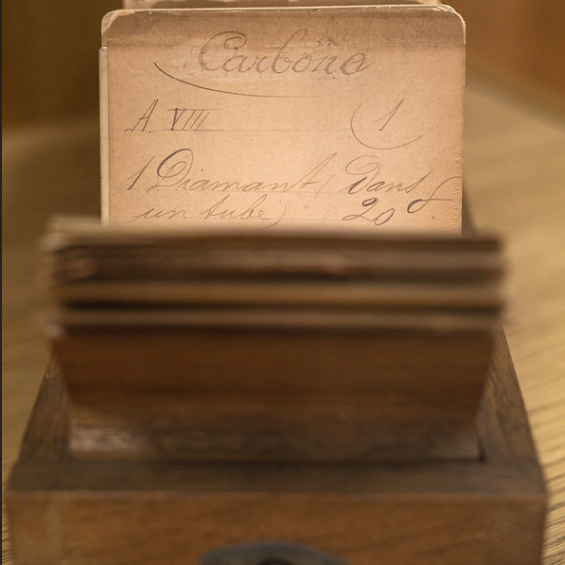 Carbone
A. VIII 1
1 Diamant (dans
un tube) 20